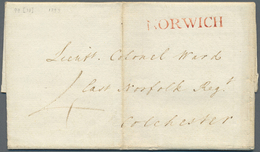 NORWICH
Lieut. Colonel Ward
East Norfolk Regt
Colchester
4